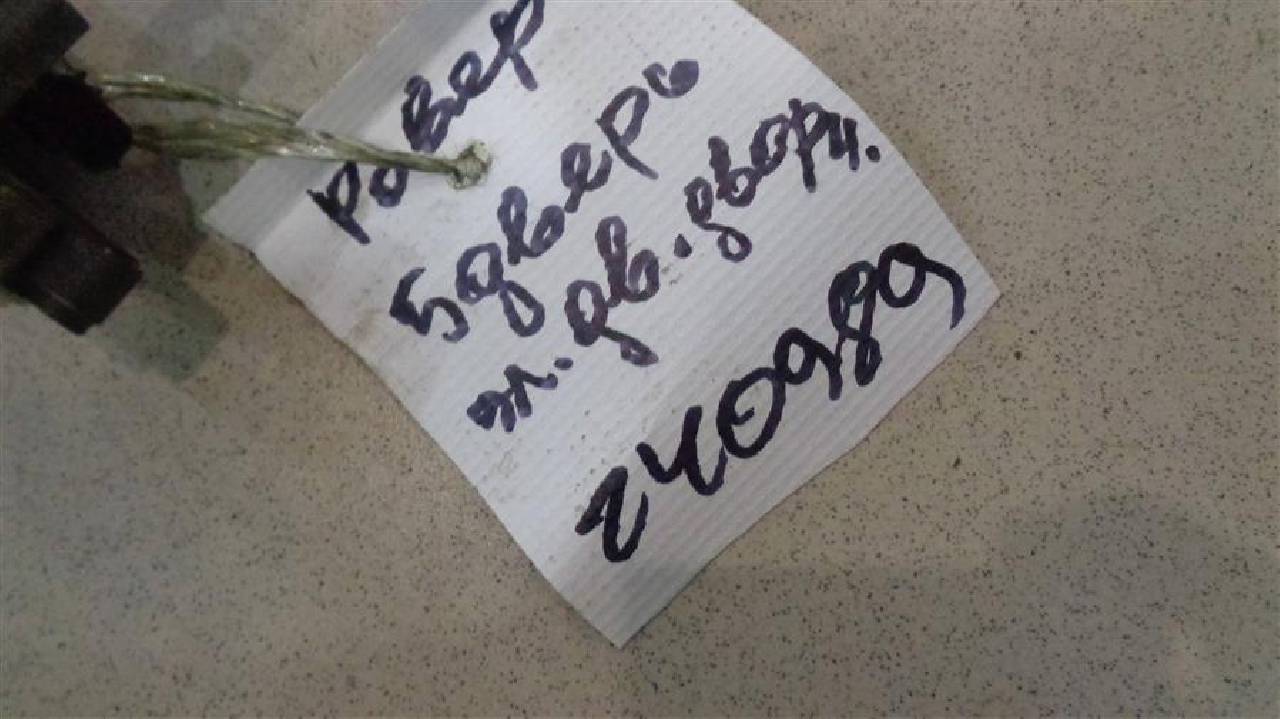 Ровер
5 дверь
эл. дв. дворн.
240989